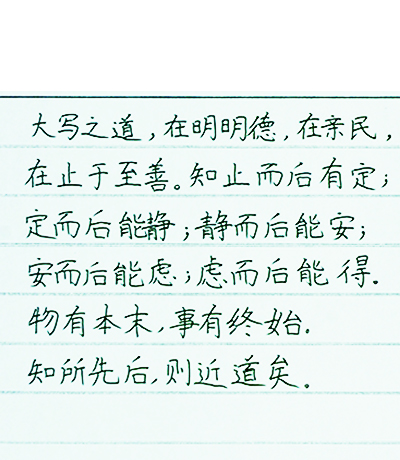 大写之道，在明明德，在亲民，
在止于至善。知止而后有定；
定而后能静；静而后能安；
安而后能虑；虑而后能得.
物有本末，事有终始.
知所先后，则近道矣.